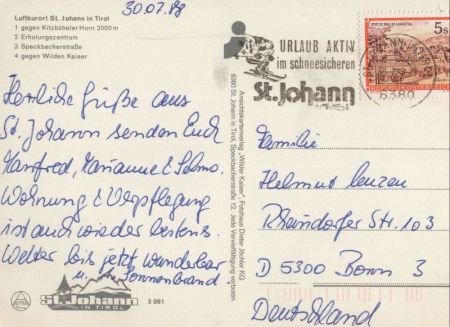 30.07.88
Luftkurort St. Johann in Tirol
1 gegen Kitzbüheler Horn 2000 m
2 Erholungszentrum
3 Speckbacherstraße
4 gegen Wilden Kaiser
Herzliche Grüße aus
St. Johann senden Euch
Manfred, Marianne & Selma.
Wohnung & Verpflegung
ist auch wieder bestens.
Wetter bis jetzt wunderbar
u. Sonnenbrand
St. Johann
IN TIROL
3 061
Ansichtskartenverlag „Wilder Kaiser", Fotohaus Dieter Jöchler KG
6380 St. Johann in Tirol, Speckbacherstraße 12, Jede Vervielfältigung verboten
URLAUB AKTIV
im schneesicheren
St. Johann
6380
5s
REPUBLIK ÖSTERREICH
Familie
Helmut Lenzen
Rheindorfer Str. 103
D 5300 Bonn 3
Deutschland